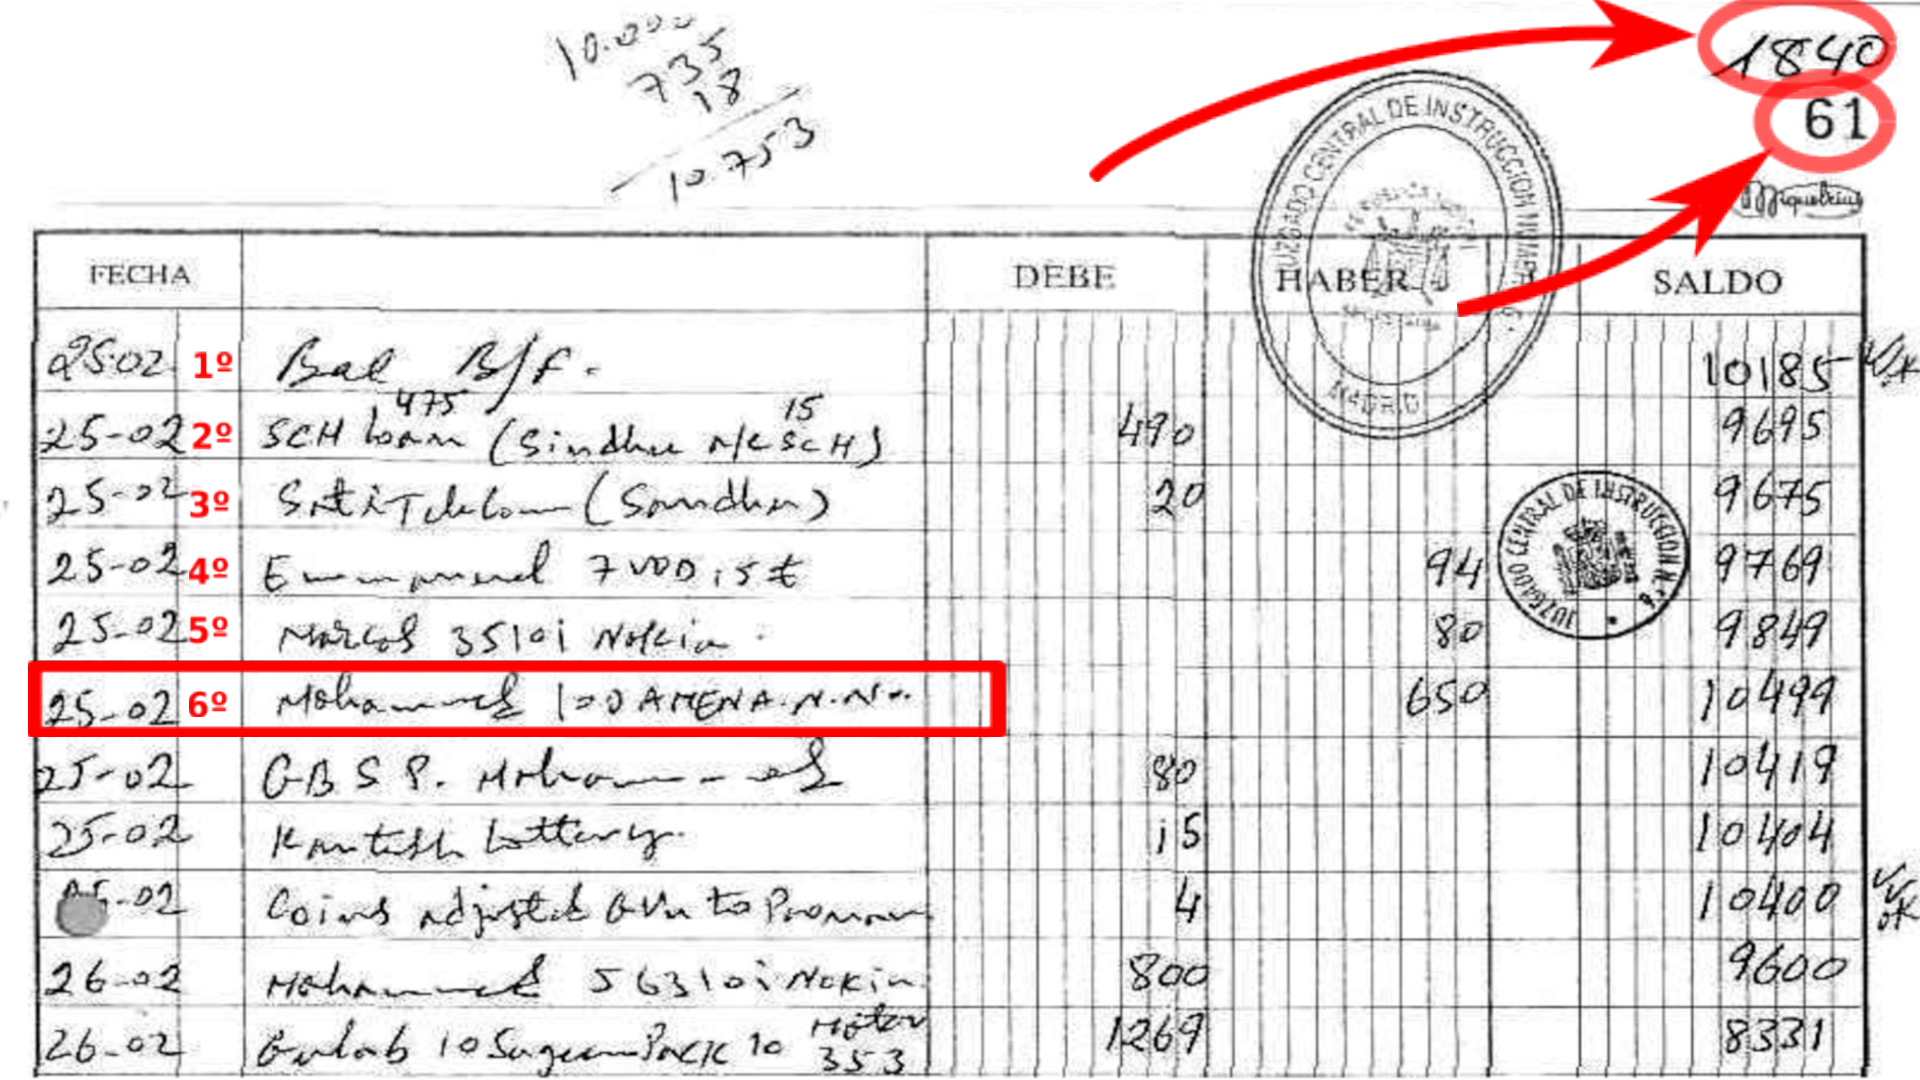 10.000
735
18
10.753
1840
61
Miquelrius
JUZGADO CENTRAL DE INSTRUCCION NUMERO
MADRID
FECHA DEBE HABER SALDO
25-02 1º Bal B/f. 10185
475 15
25-02 2º SCH loan (Sindhu A/C SCH) 490 9695
25-02 3º (Sandhu) 20 9675
25-02 4º Emmanuel 94 9769
25-02 5º Marcos 3510i Nokia 80 9849
25-02 6º Mohammed 100 AMENA.N.No. 650 10499
25-02 G.B S P. Mohammed 80 10419
25-02 Kantish Lottery. 15 10404
25-02 Coins adjusted 4 10400
OK
26-02 Mohammed 5 6310i Nokia 800 9600
26-02 Gulab 10 Pack 10 Motor 353 1269 8331
JUZGADO CENTRAL DE INSTRUCCION N.º 6